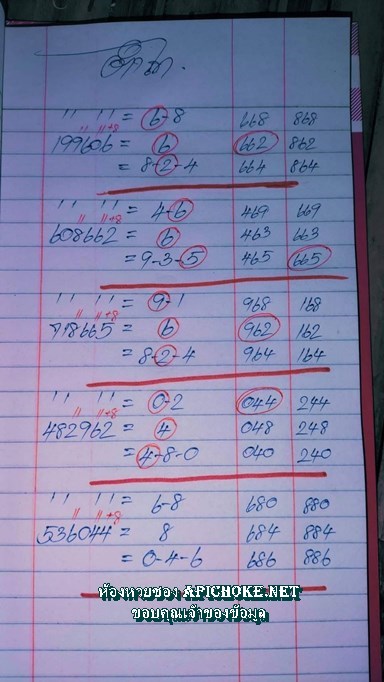 " " = 6-8 668 868
" "+8
199606 = 6 662 862
= 8-2-4 664 864
" " = 4-6 469 669
" "+8
608662 = 6 463 663
= 9-3-5 465 665
" " = 9-1 968 168
" "+8
718665 = 6 962 162
= 8-2-4 964 164
" " = 0-2 044 244
" "+8
482962 = 4 048 248
= 4-8-0 040 240
" " = 6-8 680 880
" "+8
536044 = 8 684 884
= 0-4-6 686 886
ห้องหวยซอง APICHOKE.NET
ขอบคุณเจ้าของข้อมูล